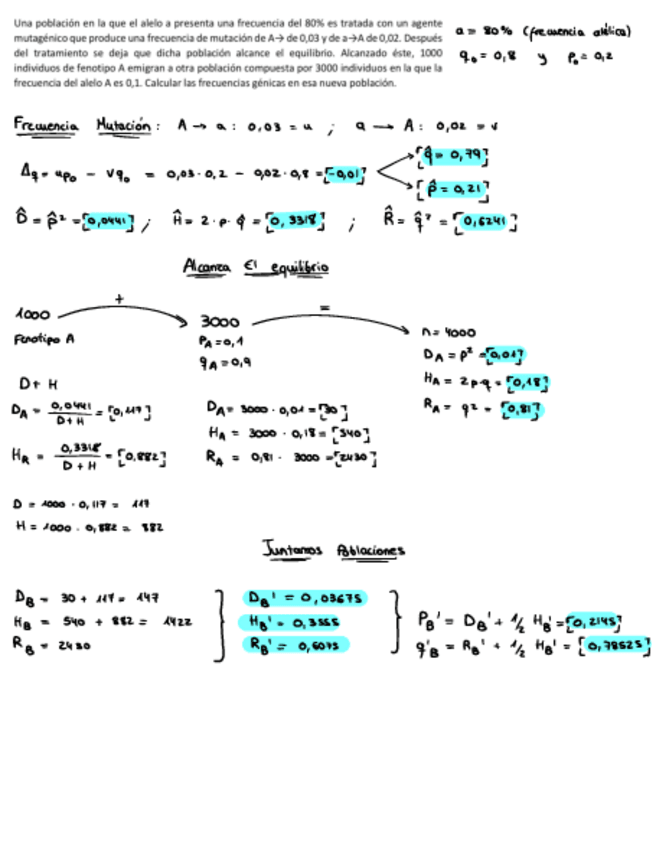 Una población en la que el alelo a presenta una frecuencia del 80% es tratada con un agente
mutagénico que produce una frecuencia de mutación de A→ de 0,03 y de a→A de 0,02. Después
del tratamiento se deja que dicha población alcance el equilibrio. Alcanzado éste, 1000
individuos de fenotipo A emigran a otra población compuesta por 3000 individuos en la que la
frecuencia del alelo A es 0,1. Calcular las frecuencias génicas en esa nueva población.
a = 80% (frecuencia alélica)
q₀ = 0,8 y p₀ = 0,2
Frecuencia Mutación: A → a : 0,03 = u ; a → A : 0,02 = v
Δq = up₀ - vq₀ = 0,03·0,2 - 0,02·0,8 = [-0,01]
[q̂ = 0,79]
[p̂ = 0,21]
D̂ = p̂² = [0,0441] ; Ĥ = 2·p·q̂ = [0,3318] ; R̂ = q̂² = [0,6241]
Alcanza El equilibrio
1000 + 3000 = n = 4000
Fenotipo A
P_A = 0,1
q_A = 0,9
D_A = p² = [0,01]
H_A = 2p·q = [0,18]
R_A = q² = [0,81]
D + H
D_A = 0,0441 / D+H = [0,117]
H_R = 0,3318 / D+H = [0,882]
D_A = 3000 · 0,01 = [30]
H_A = 3000 · 0,18 = [540]
R_A = 0,81 · 3000 = [2430]
D = 1000 · 0,117 = 117
H = 1000 · 0,882 = 882
Juntamos Poblaciones
D_B = 30 + 117 = 147
H_B = 540 + 882 = 1422
R_B = 2430
D_B' = 0,03675
H_B' = 0,3555
R_B' = 0,6075
P_B' = D_B' + 1/2 H_B' = [0,2145]
q'_B = R_B' + 1/2 H_B' = [0,78525]